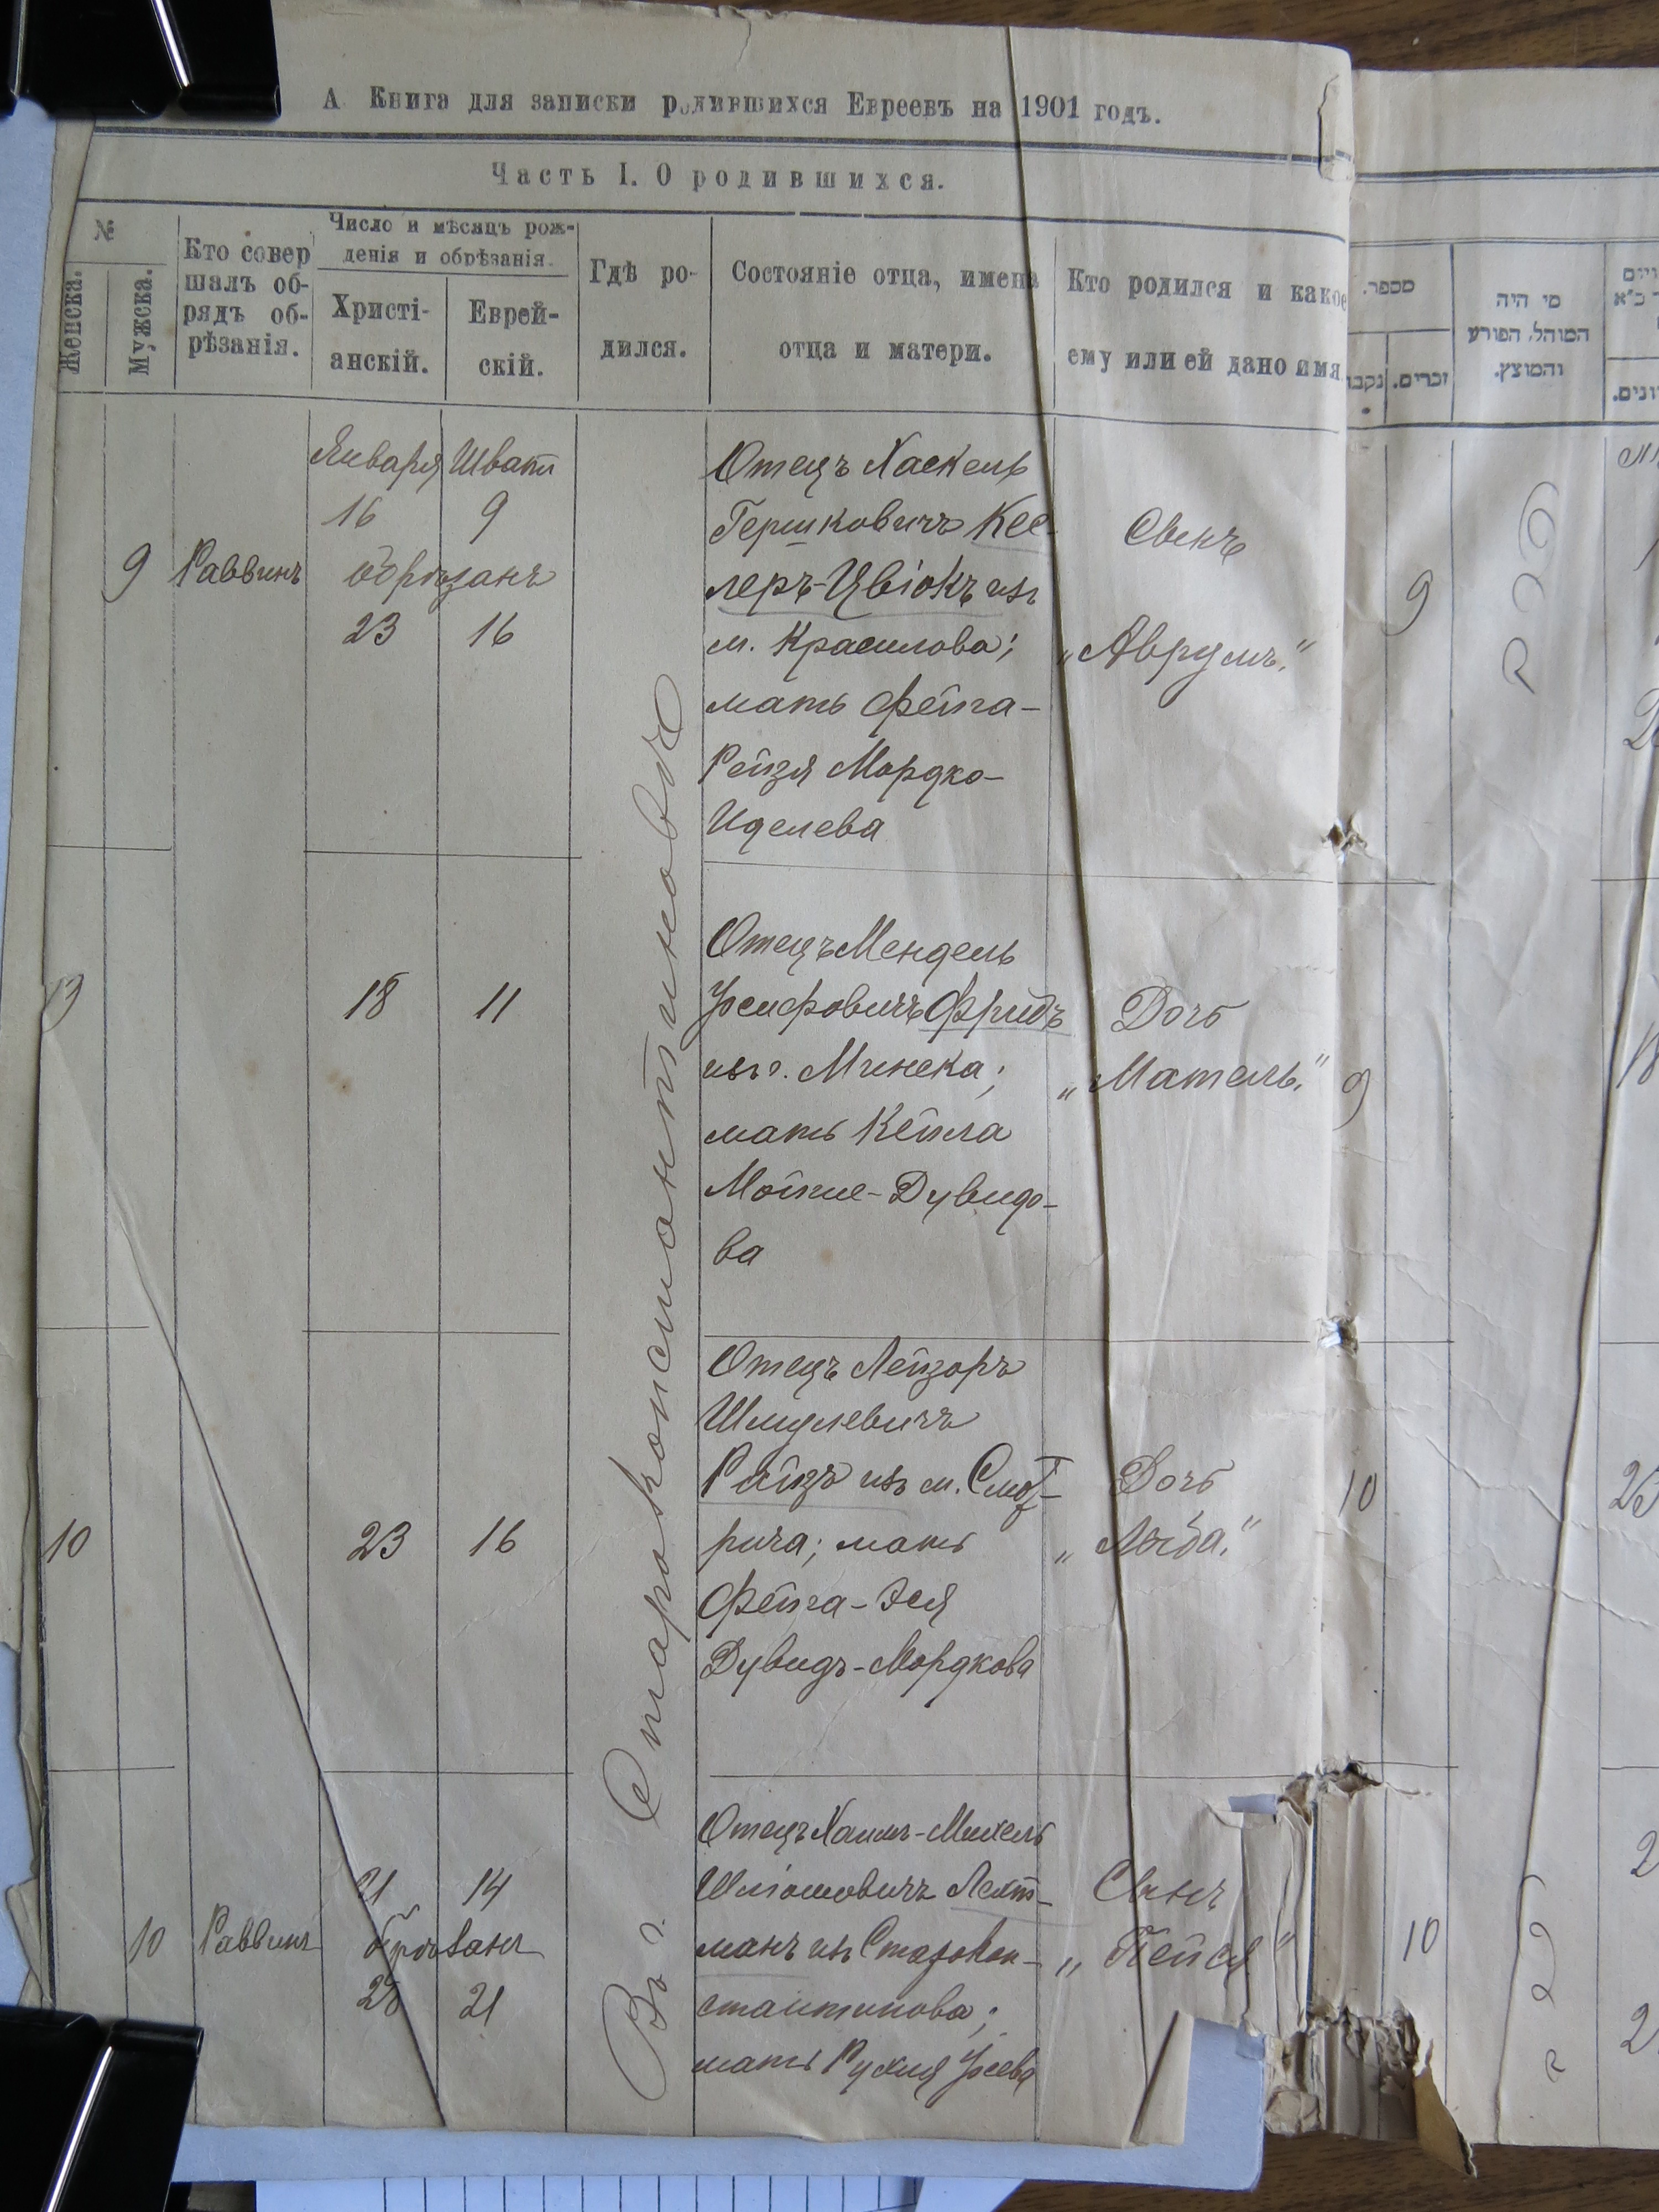 А Книга для записки родившихся Евреевъ на 1901 годъ.
Часть I. О родившихся.
№
Женска.
Мужска.
Кто совер
шалъ об-
рядъ об-
рѣзанія.
Число и мѣсяцъ рож-
денія и обрѣзанія.
Христі-
анскій.
Еврей-
скій.
Гдѣ ро-
дился.
Состояніе отца, имена
отца и матери.
Кто родился и какое
ему или ей дано имя
מספר.
זכרים.
נקבו
מי היה
המוהל, הפורע
והמוצץ.
Въ г. Староконстантиновѣ
9
Раввинъ
Января Шватъ
16 9
обрѣзанъ
23 16
Отецъ Хаскель
Гершковичъ Кес-
леръ-Цвіокъ изъ
м. Красилова;
мать Фейга-
Рейзя Мордко-
Иделева
Сынъ
„Аврумъ."
9
9
18 11
Отецъ Мендель
Іосифовичъ Фридъ
изъ г. Минска;
мать Кейла
Мойше-Дувидо-
ва
Дочь
„Матель."
9
10
23 16
Отецъ Лейзоръ
Шмулевичъ
Райзъ изъ м. Смот-
рича; мать
Фейга-Эся
Дувидъ-Мордкова
Дочь
„Люба."
10
10
Раввинъ
21 14
обрѣзанъ
28 21
Отецъ Хаимъ-Михель
Шліомовичъ Лехт-
манъ изъ Старокон-
стантинова;
мать Рухля Іосева
Сынъ
„Пейся"
10